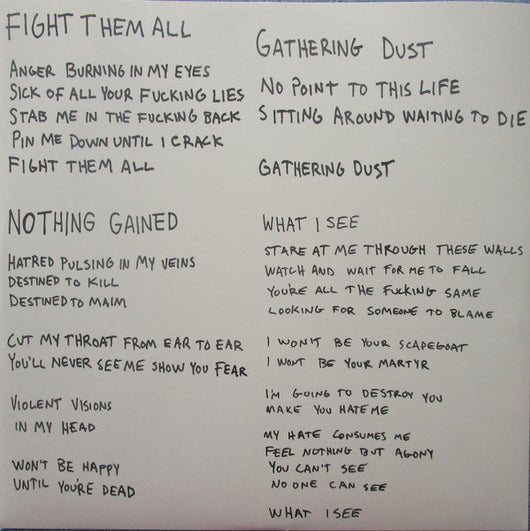 FIGHT THEM ALL
ANGER BURNING IN MY EYES
SICK OF ALL YOUR FUCKING LIES
STAB ME IN THE FUCKING BACK
PIN ME DOWN UNTIL I CRACK
FIGHT THEM ALL
NOTHING GAINED
HATRED PULSING IN MY VEINS
DESTINED TO KILL
DESTINED TO MAIM
CUT MY THROAT FROM EAR TO EAR
YOU'LL NEVER SEE ME SHOW YOU FEAR
VIOLENT VISIONS
IN MY HEAD
WON'T BE HAPPY
UNTIL YOU'RE DEAD
GATHERING DUST
NO POINT TO THIS LIFE
SITTING AROUND WAITING TO DIE
GATHERING DUST
WHAT I SEE
STARE AT ME THROUGH THESE WALLS
WATCH AND WAIT FOR ME TO FALL
YOU'RE ALL THE FUCKING SAME
LOOKING FOR SOMEONE TO BLAME
I WON'T BE YOUR SCAPEGOAT
I WONT BE YOUR MARTYR
I'M GOING TO DESTROY YOU
MAKE YOU HATE ME
MY HATE CONSUMES ME
FEEL NOTHING BUT AGONY
YOU CAN'T SEE
NO ONE CAN SEE
WHAT I SEE